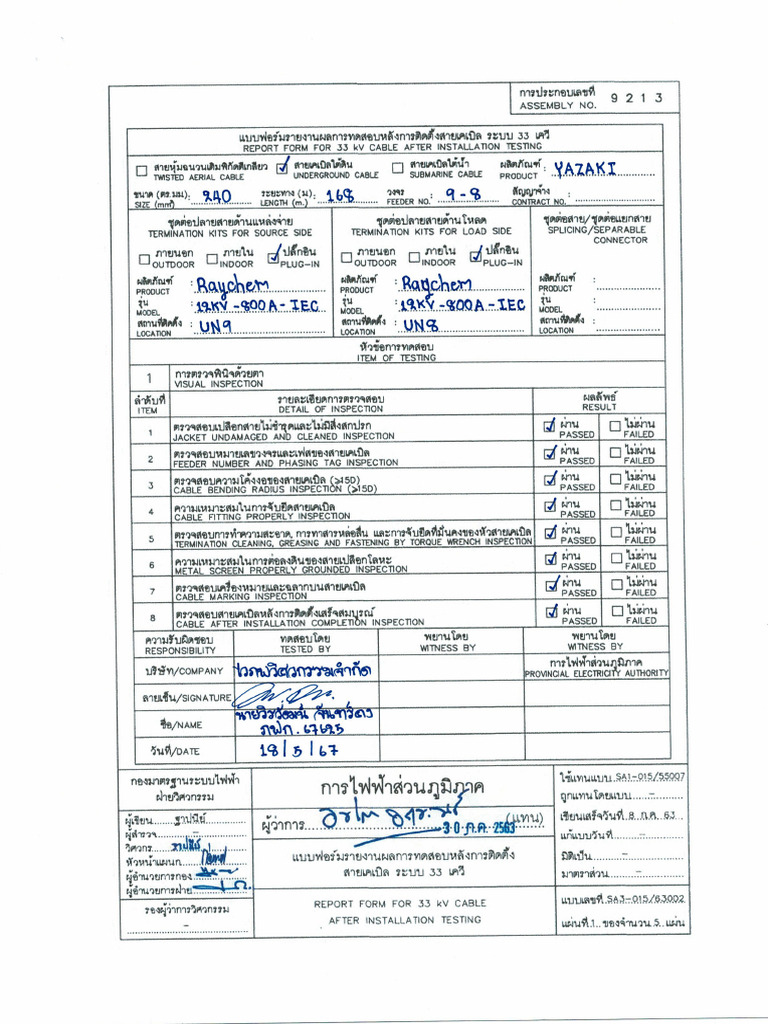 การประกอบเลขที่
ASSEMBLY NO. 9213
แบบฟอร์มรายงานผลการทดสอบหลังการติดตั้งสายเคเบิล ระบบ 33 เควี
REPORT FORM FOR 33 kV CABLE AFTER INSTALLATION TESTING
สายหุ้มฉนวนเต็มพิกัดตีเกลียว สายเคเบิลใต้ดิน สายเคเบิลใต้น้ำ ผลิตภัณฑ์
TWISTED AERIAL CABLE UNDERGROUND CABLE SUBMARINE CABLE PRODUCT : YAZAKI
ขนาด (ตร.มม): 240 ระยะทาง (ม): 168 วงจร 9-8 สัญญาจ้าง
SIZE (mm²) LENGTH (m.) FEEDER NO. CONTRACT NO.
ชุดต่อปลายสายด้านแหล่งจ่าย ชุดต่อปลายสายด้านโหลด ชุดต่อสาย/ชุดต่อแยกสาย
TERMINATION KITS FOR SOURCE SIDE TERMINATION KITS FOR LOAD SIDE SPLICING/SEPARABLE
CONNECTOR
ภายนอก ภายใน ปลั๊กอิน ภายนอก ภายใน ปลั๊กอิน
OUTDOOR INDOOR PLUG-IN OUTDOOR INDOOR PLUG-IN
ผลิตภัณฑ์ : Raychem ผลิตภัณฑ์ : Raychem ผลิตภัณฑ์ :
PRODUCT PRODUCT PRODUCT
รุ่น : 12KV-800A-IEC รุ่น : 12KV-800A-IEC รุ่น :
MODEL MODEL MODEL
สถานที่ติดตั้ง : UN9 สถานที่ติดตั้ง : UN8 สถานที่ติดตั้ง :
LOCATION LOCATION LOCATION
หัวข้อการทดสอบ
ITEM OF TESTING
1 การตรวจพินิจด้วยตา
VISUAL INSPECTION
ลำดับที่ รายละเอียดการตรวจสอบ ผลลัพธ์
ITEM DETAIL OF INSPECTION RESULT
1 ตรวจสอบเปลือกสายไม่ชำรุดและไม่มีสิ่งสกปรก ผ่าน ไม่ผ่าน
JACKET UNDAMAGED AND CLEANED INSPECTION PASSED FAILED
2 ตรวจสอบหมายเลขวงจรและเฟสของสายเคเบิล ผ่าน ไม่ผ่าน
FEEDER NUMBER AND PHASING TAG INSPECTION PASSED FAILED
3 ตรวจสอบความโค้งงอของสายเคเบิล (≥15D) ผ่าน ไม่ผ่าน
CABLE BENDING RADIUS INSPECTION (≥15D) PASSED FAILED
4 ความเหมาะสมในการจับยึดสายเคเบิล ผ่าน ไม่ผ่าน
CABLE FITTING PROPERLY INSPECTION PASSED FAILED
5 ตรวจสอบการทำความสะอาด, การทาสารหล่อลื่น และการจับยึดที่มั่นคงของหัวสายเคเบิล ผ่าน ไม่ผ่าน
TERMINATION CLEANING, GREASING AND FASTENING BY TORQUE WRENCH INSPECTION PASSED FAILED
6 ความเหมาะสมในการต่อลงดินของสายเปลือกโลหะ ผ่าน ไม่ผ่าน
METAL SCREEN PROPERLY GROUNDED INSPECTION PASSED FAILED
7 ตรวจสอบเครื่องหมายและฉลากบนสายเคเบิล ผ่าน ไม่ผ่าน
CABLE MARKING INSPECTION PASSED FAILED
8 ตรวจสอบสายเคเบิลหลังการติดตั้งเสร็จสมบูรณ์ ผ่าน ไม่ผ่าน
CABLE AFTER INSTALLATION COMPLETION INSPECTION PASSED FAILED
ความรับผิดชอบ ทดสอบโดย พยานโดย พยานโดย
RESPONSIBILITY TESTED BY WITNESS BY WITNESS BY
บริษัท/COMPANY การไฟฟ้าส่วนภูมิภาค
PROVINCIAL ELECTRICITY AUTHORITY
ลายเซ็น/SIGNATURE
ชื่อ/NAME
ภฟก. 67625
วันที่/DATE 18/5/67
กองมาตรฐานระบบไฟฟ้า การไฟฟ้าส่วนภูมิภาค ใช้แทนแบบ SA1-015/55007
ฝ่ายวิศวกรรม ถูกแทนโดยแบบ -
ผู้เขียน ฐาปนีย์ ผู้ว่าการ (แทน) เขียนเสร็จวันที่ 8 ก.ค. 63
ผู้สำรวจ - 30 ก.ค. 2563 แก้แบบวันที่ -
วิศวกร
หัวหน้าแผนก แบบฟอร์มรายงานผลการทดสอบหลังการติดตั้ง มิติเป็น -
ผู้อำนวยการกอง สายเคเบิล ระบบ 33 เควี มาตราส่วน -
ผู้อำนวยการฝ่าย
รองผู้ว่าการวิศวกรรม REPORT FORM FOR 33 kV CABLE แบบเลขที่ SA3-015/63002
- AFTER INSTALLATION TESTING แผ่นที่ 1 ของจำนวน 5 แผ่น